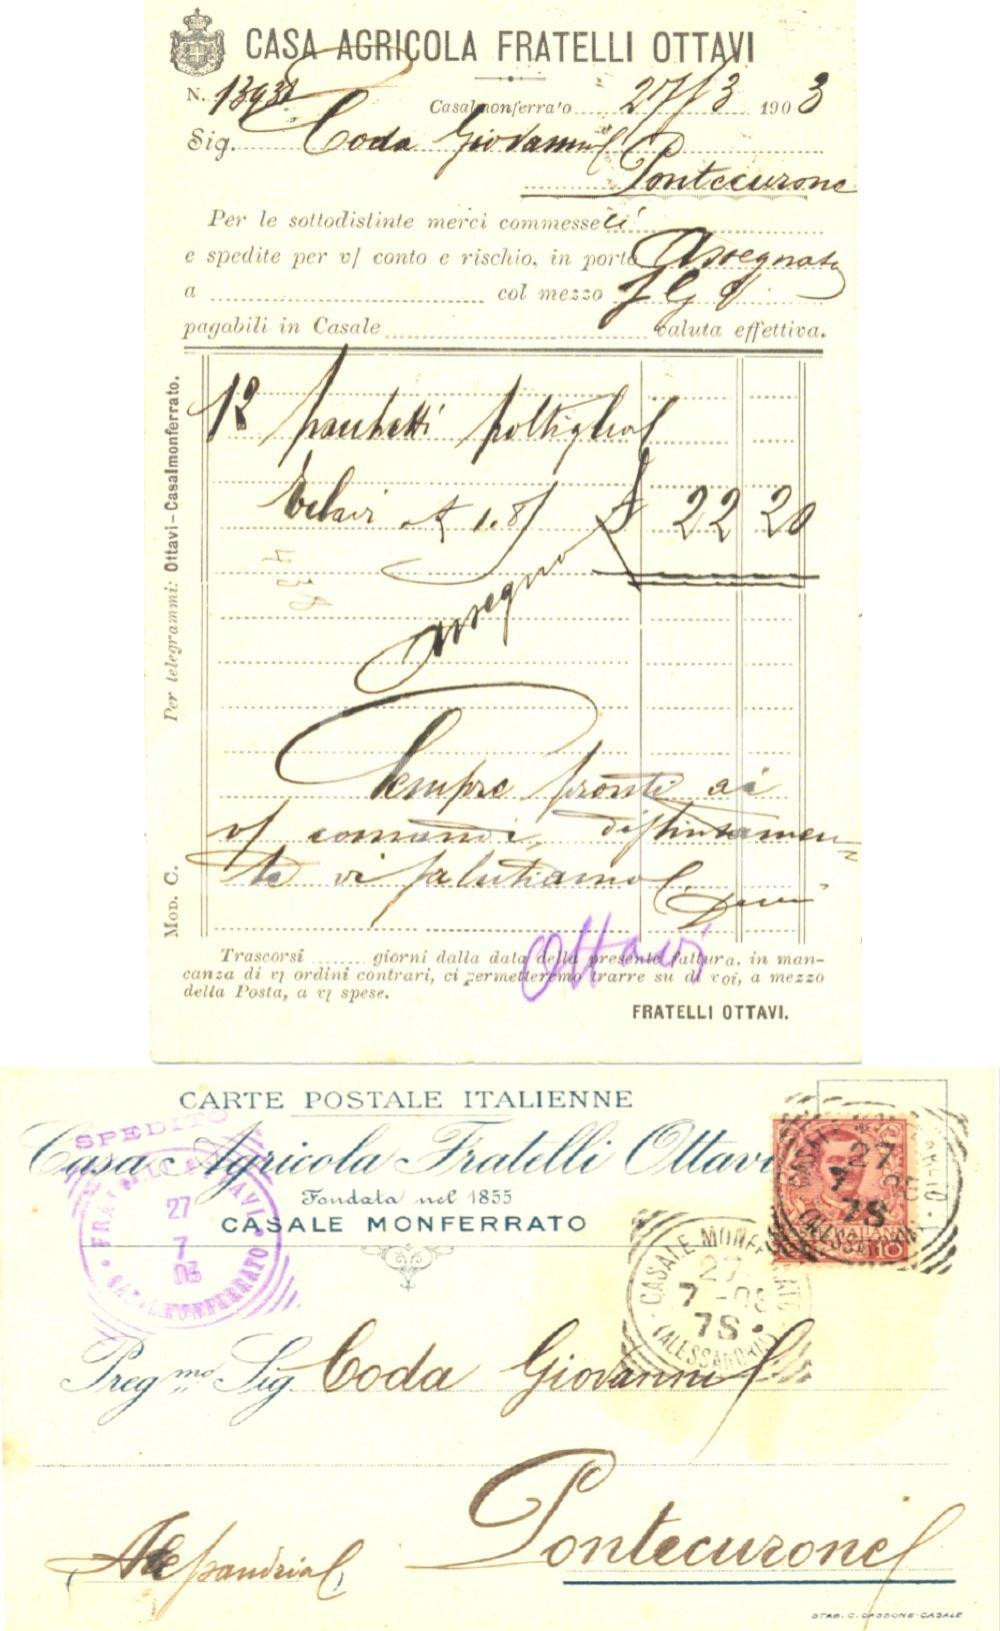 CASA AGRICOLA FRATELLI OTTAVI
N. 13938
Casalmonferrato 27/3 1903
Sig. Coda Giovanni
Pontecurone
Per le sottodistinte merci commesseci
e spedite per v/ conto e rischio, in porto Assegnato
a col mezzo
pagabili in Casale valuta effettiva.
12 pacchetti poltiglia
1.85 £ 22 20
Assegno
Sempre pronti ai
v/ comandi, distintamen-
te vi salutiamo
Ottavi
Trascorsi giorni dalla data della presente fattura, in man-
canza di v/ ordini contrari, ci permetteremo trarre su di voi, a mezzo
della Posta, a v/ spese.
FRATELLI OTTAVI.
Per telegrammi: Ottavi-Casalmonferrato.
MOD. C.
CARTE POSTALE ITALIENNE
SPEDITO
Casa Agricola Fratelli Ottavi
Fondata nel 1855
CASALE MONFERRATO
FRATELLI OTTAVI
27
7
03
CASALMONFERRATO
CASALE MONFERRATO
27
7S
(ALESSANDRIA)
CASALE MONFERRATO
7
7S
(ALESSANDRIA)
10
Preg.mo Sig Coda Giovanni
Pontecurone
Alessandria
STAB. C. CASSONE-CASALE